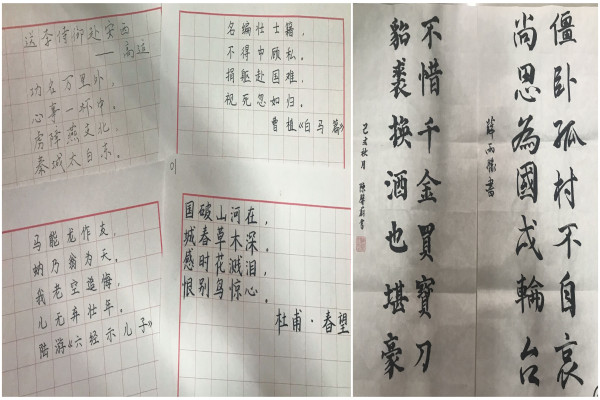 送李侍御赴安西
——高适
功名万里外，
心事一杯中。
虏障燕支北，
秦城太白东。
名编壮士籍，
不得中顾私。
捐躯赴国难，
视死忽如归。
曹植《白马篇》
马能龙作友，
蚋乃瓮为天。
我老空追悔，
儿无弃壮年。
陆游《六经示儿子》
国破山河在，
城春草木深。
感时花溅泪，
恨别鸟惊心。
杜甫·春望
僵卧孤村不自哀
尚思為國戍輪台
不惜千金買寶刀
貂裘換酒也堪豪
己亥秋月